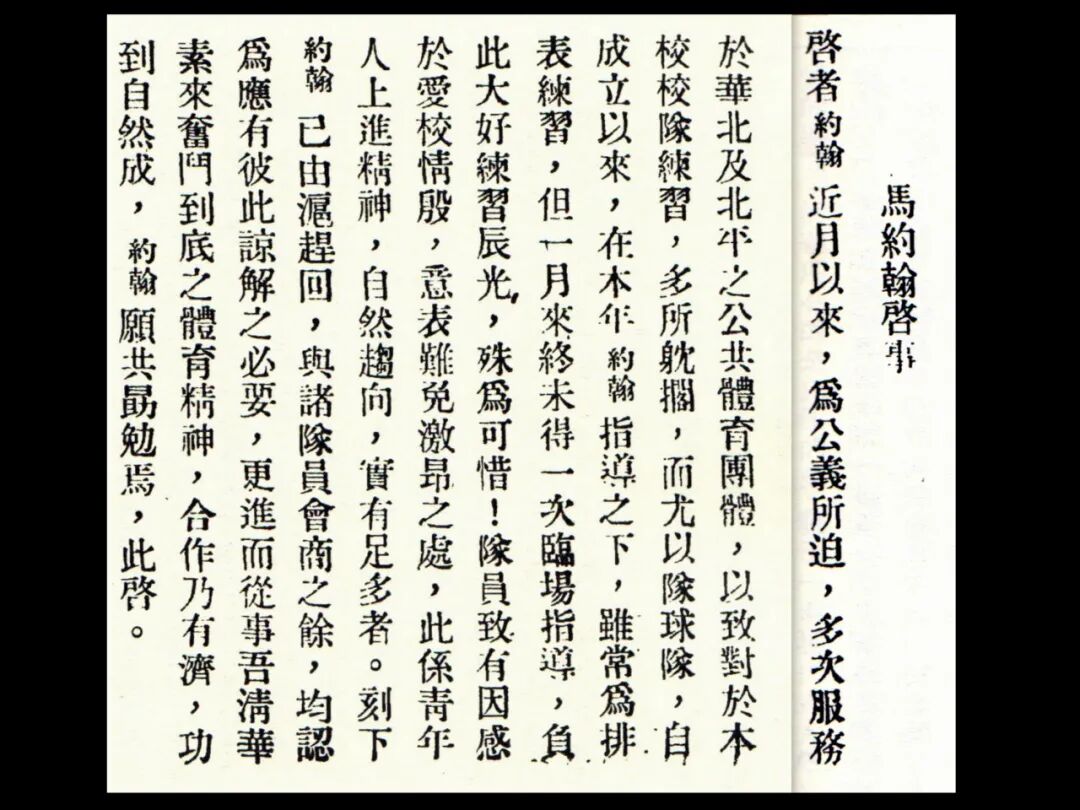 馬約翰啓事
啓者約翰近月以來，爲公義所迫，多次服務
於華北及北平之公共體育團體，以致對於本
校校隊練習，多所躭擱，而尤以隊球隊，自
成立以來，在本年約翰指導之下，雖常爲排
表練習，但一月來終未得一次臨場指導，負
此大好練習辰光，殊爲可惜！隊員致有因感
於愛校情殷，意表難免激昂之處，此係青年
人上進精神，自然趨向，實有足多者。刻下
約翰已由滬趕回，與諸隊員會商之餘，均認
爲應有彼此諒解之必要，更進而從事吾清華
素來奮鬥到底之體育精神，合作乃有濟，功
到自然成，約翰願共勗勉焉，此啓。